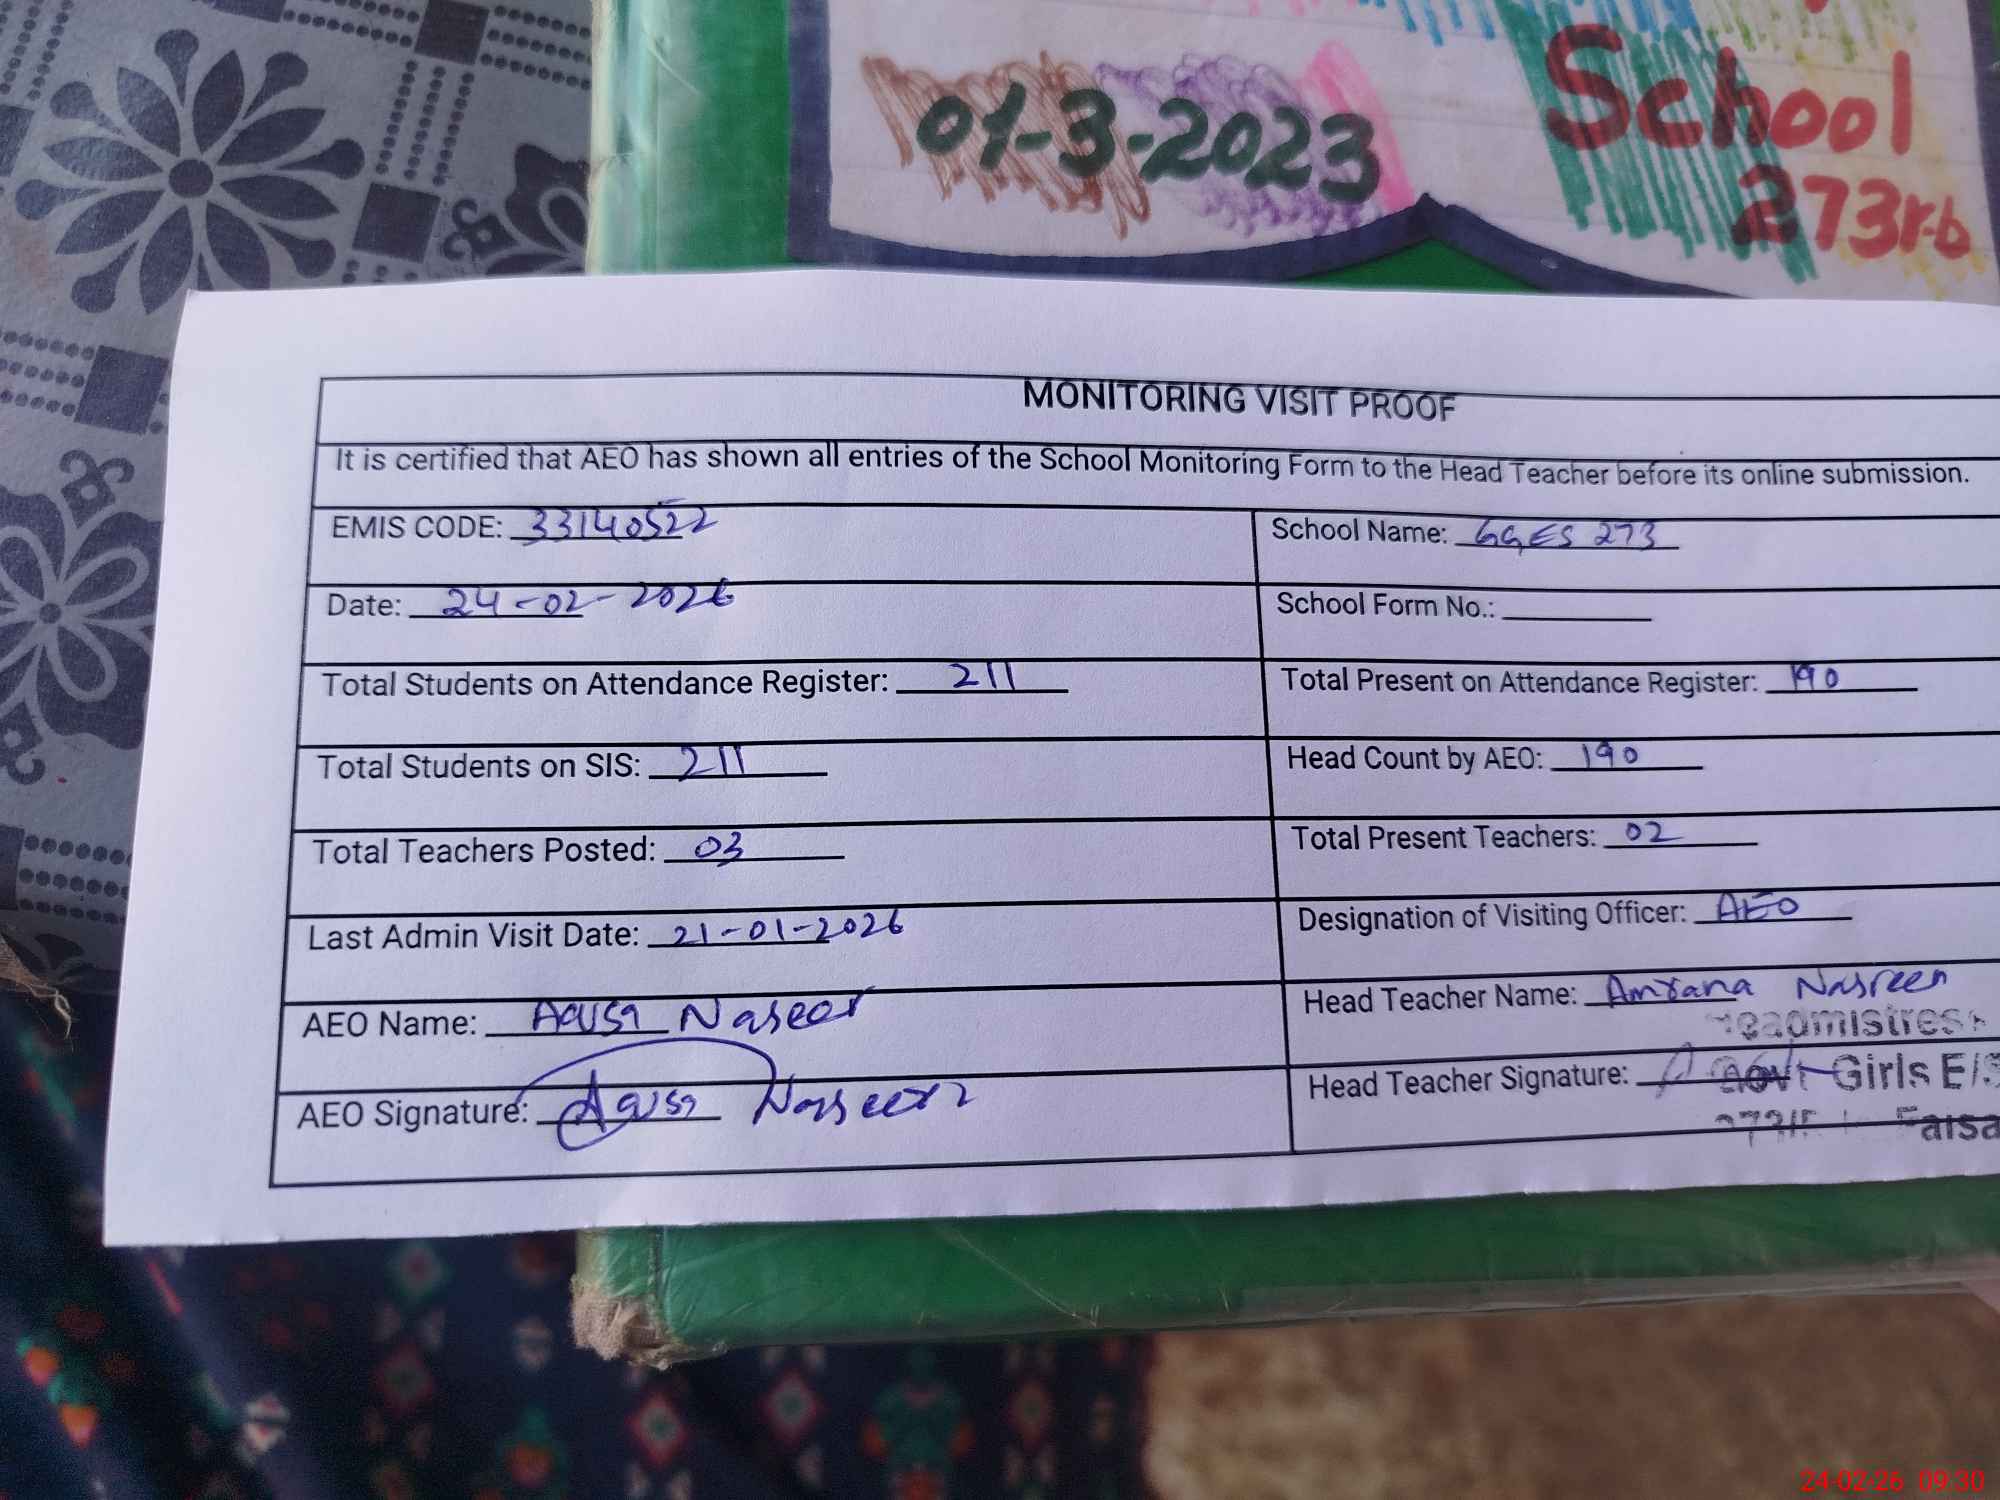 01-3-2023
School
273r-b
MONITORING VISIT PROOF
It is certified that AEO has shown all entries of the School Monitoring Form to the Head Teacher before its online submission.
EMIS CODE: 33140522
School Name: GGES 273
Date: 24-02-2026
School Form No.:
Total Students on Attendance Register: 211
Total Present on Attendance Register: 190
Total Students on SIS: 211
Head Count by AEO: 190
Total Teachers Posted: 03
Total Present Teachers: 02
Last Admin Visit Date: 21-01-2026
Designation of Visiting Officer: AEO
AEO Name: Aqusa Naseer
Head Teacher Name: Amrana Nasreen
eadmistress
AEO Signature: Naseer
Head Teacher Signature:
Govt Girls E/S
24-02-26 09:30